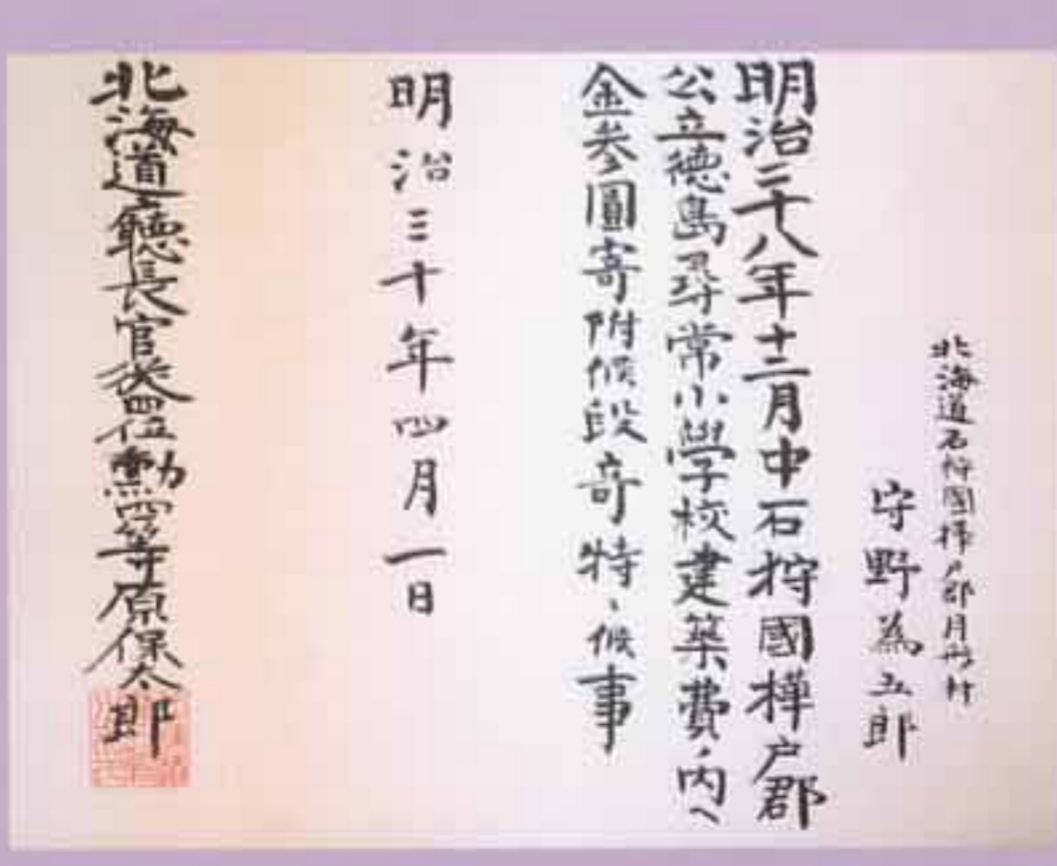 北海道石狩國樺戸郡月形村
守野為五郎
明治二十八年十二月中石狩國樺戸郡
公立德島尋常小學校建築費ノ内ヘ
金参圓寄附候段奇特ニ候事
明治三十年四月一日
北海道廳長官従四位勳四等原保太郎